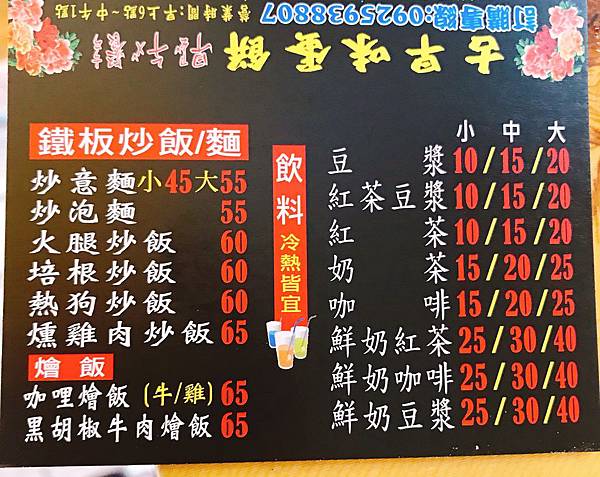 訂購專線:0925938807
營業時間:早上6點~中午1點
古早味蛋餅
早&午餐
鐵板炒飯/麵
炒意麵小45大55
炒泡麵 55
火腿炒飯 60
培根炒飯 60
熱狗炒飯 60
燻雞肉炒飯 65
燴飯
咖哩燴飯(牛/雞)65
黑胡椒牛肉燴飯 65
飲料 冷熱皆宜
小 中 大
豆漿 10/15/20
紅茶豆漿 10/15/20
紅茶 10/15/20
奶茶 15/20/25
咖啡 15/20/25
鮮奶紅茶 25/30/40
鮮奶咖啡 25/30/40
鮮奶豆漿 25/30/40